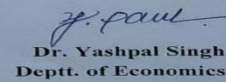 Dr. Yashpal Singh
Deptt. of Economics